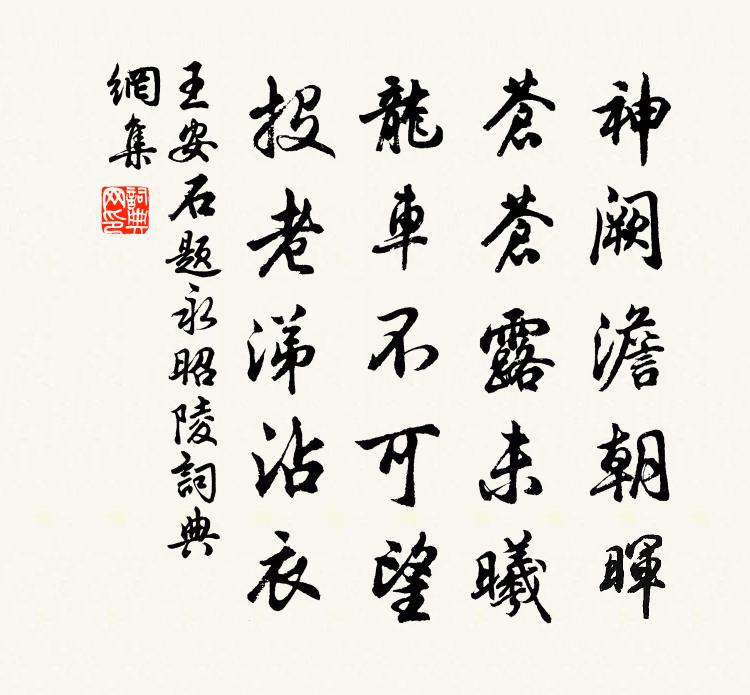 神闕澹朝暉
蒼蒼露未曦
龍車不可望
投老涕沾衣
王安石題永昭陵詞典
網集
詞典網印